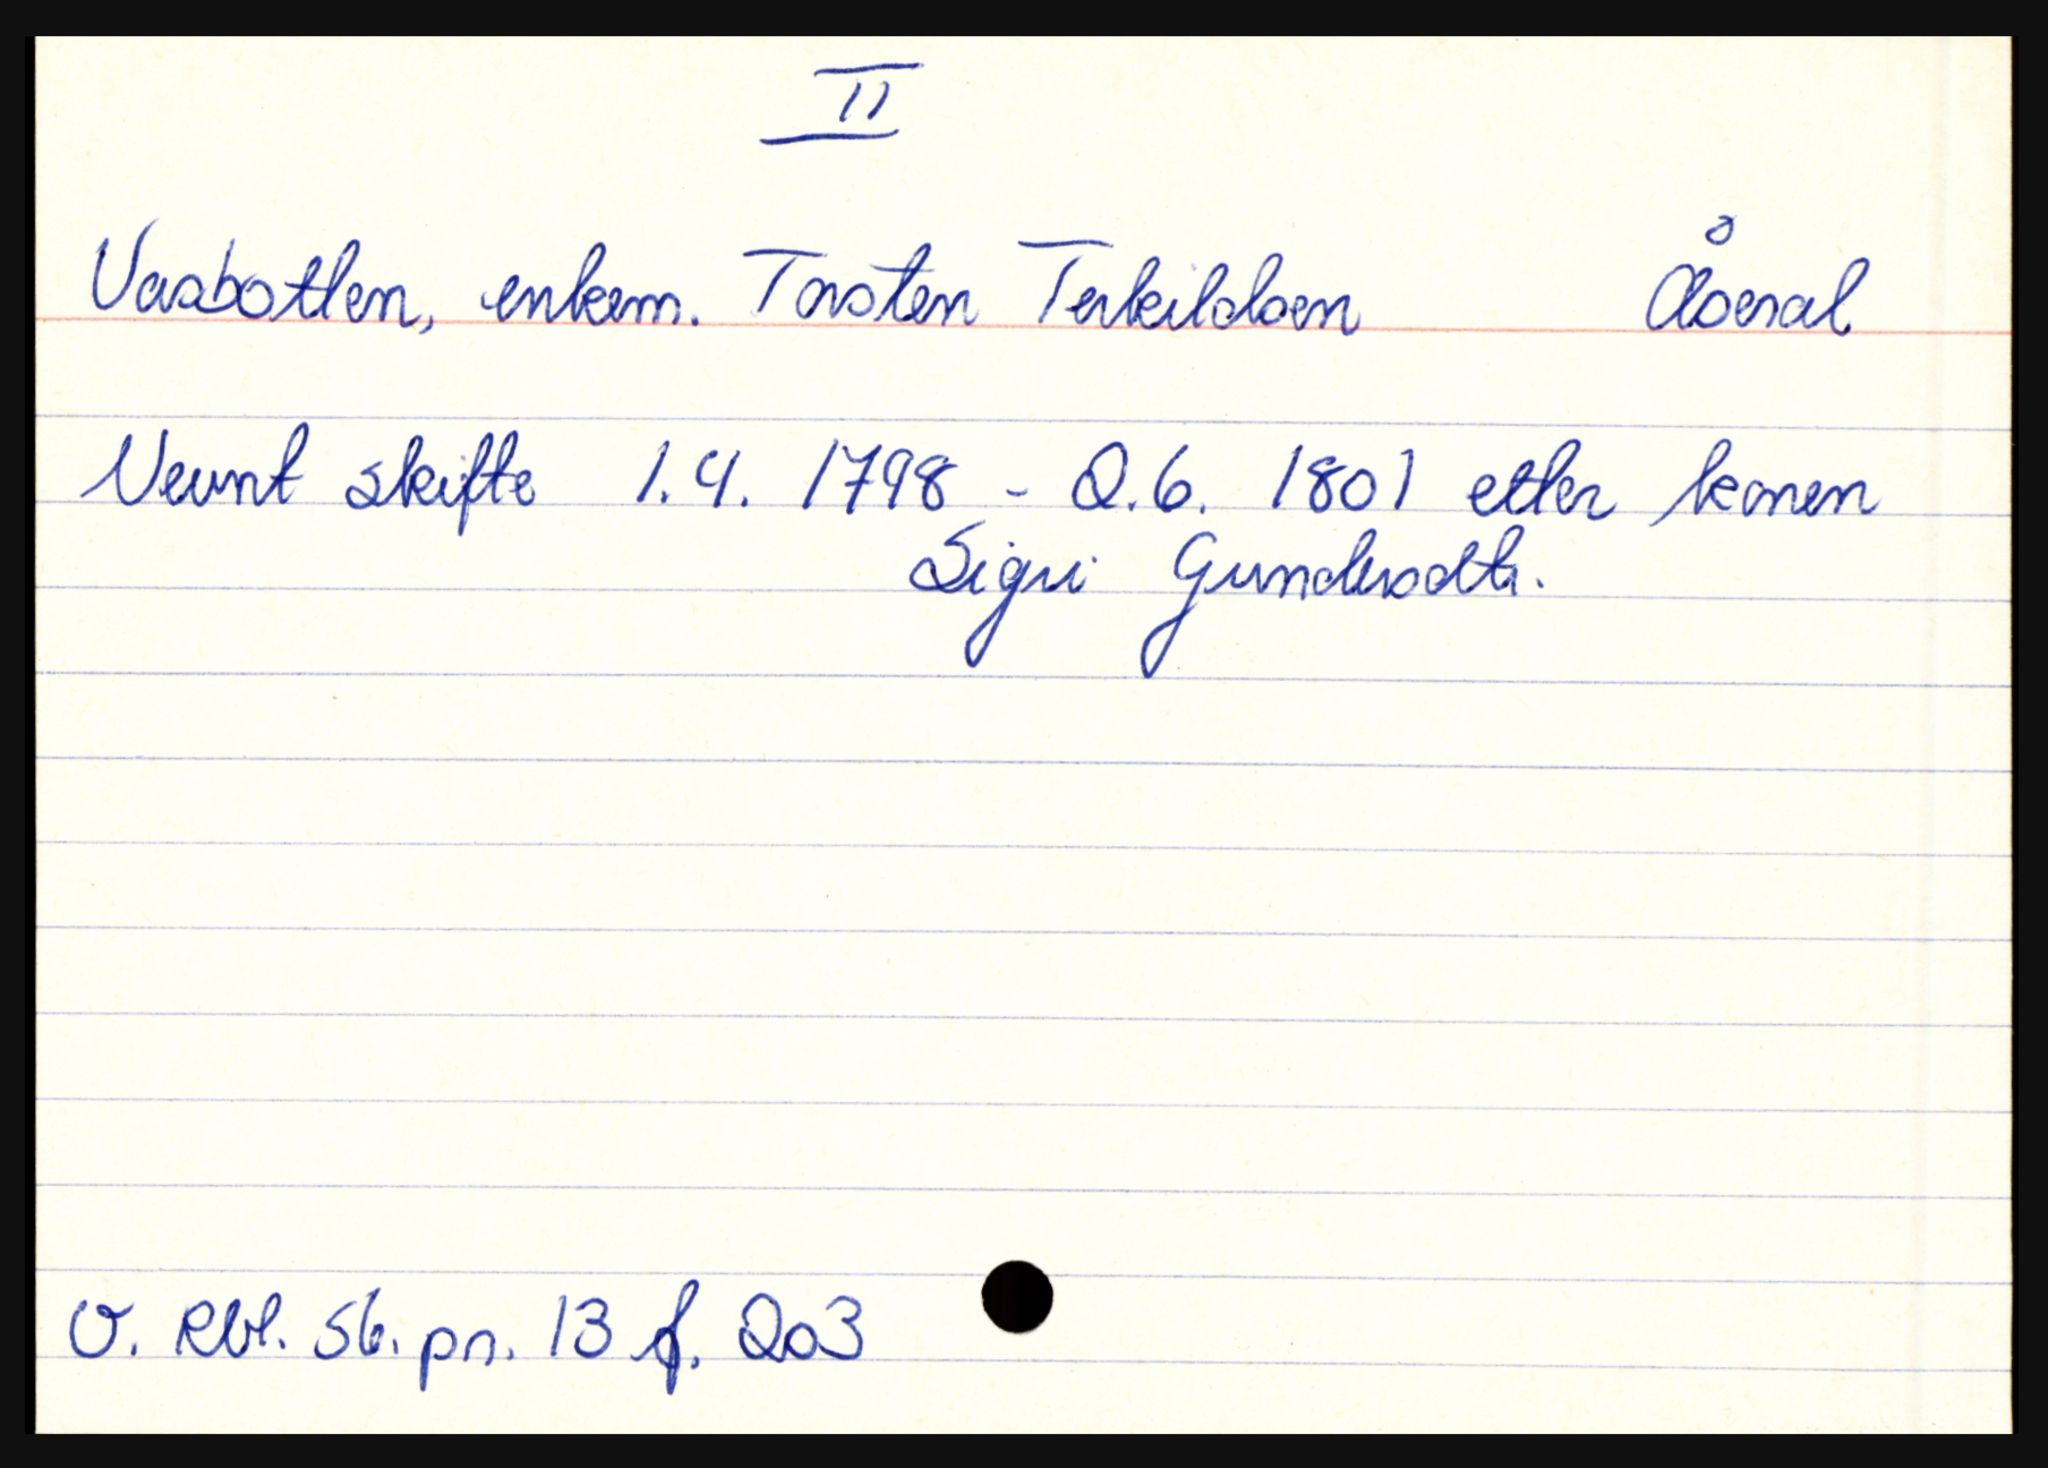 II
Vasbotten, enkem. Torsten Terkildsen Åseral
Nevnt skifte 1.4. 1798 - 2.6. 1801 etter konen
Sigri Gundersdtr.
V. Rbl. Sb. pr. 13 f. 203